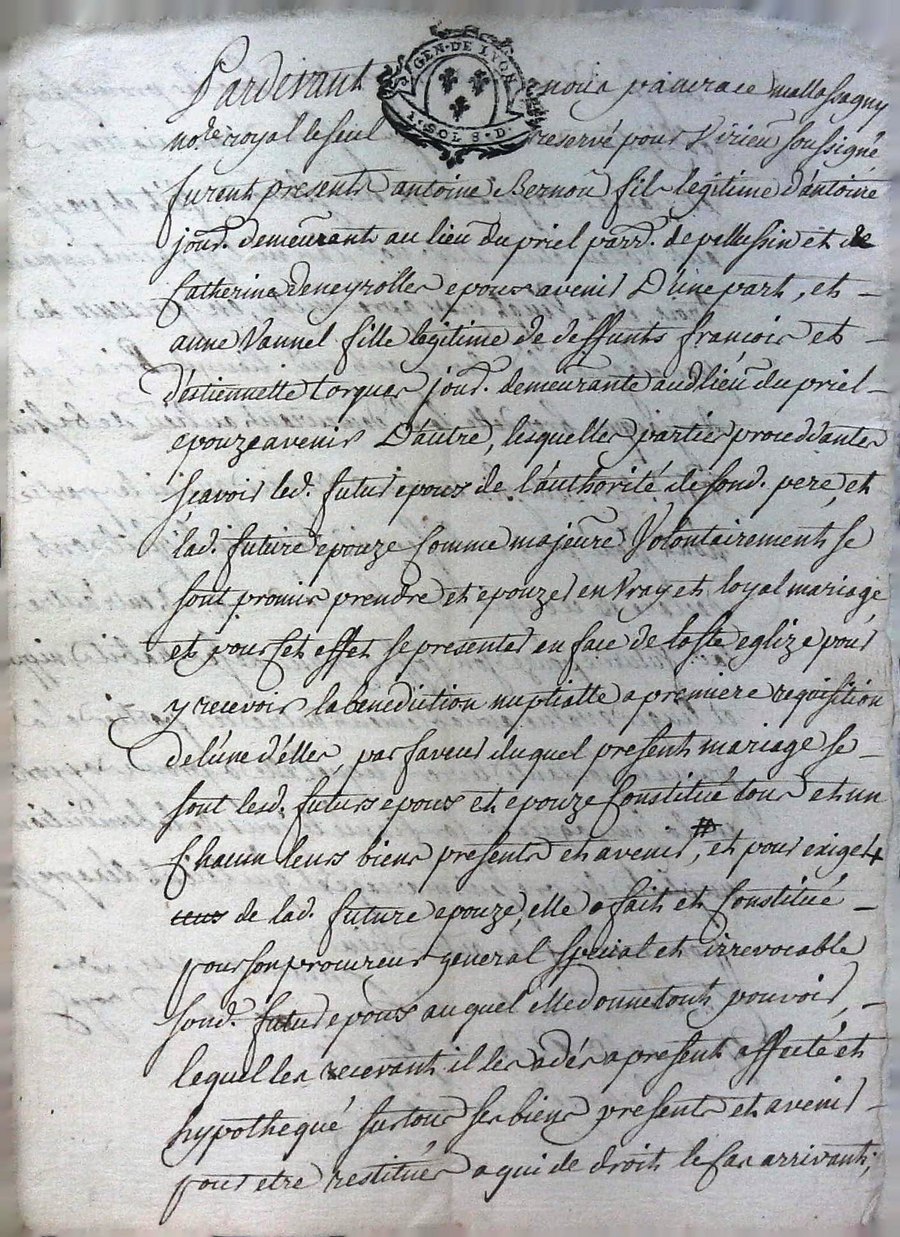 GEN·DE LYON
1·SOL 8·D·
Pardevant nous pancrace mallassagny
no.re royal le seul reservé pour Virieu soussigné
furent presents antoine Bernou fils legitime d'antoine
jour.r demeurants au lieu du priel parr.e de pellussin et de
Catherine deneyrolles epoux avenir D'une part, et
anne Vannel fille legitime de deffunts francois et
d'estiennette torques jour.r demeurante aud. lieu du priel
epouze avenir D'autre, lesquelles parties proceddantes
scavoir led. futur epoux de l'authorité de sond. pere, et
lad. future epouze Comme majeure Volontairement se
sont promis prendre et epouzer en Vray et loyal mariage
et pour Cet effet se presenter en face de loste eglize pour
y recevoir la benediction nuptialle a premiere requisition
de l'une d'elles, par faveur duquel present mariage se
sont lesd. futurs epoux et epouze Constitué tous et un
Chacun leurs biens presents et avenir, # et pour exiger +
ceux de lad. future epouze, elle a fait et Constitué
pour son procureur general special et irrevocable
sond. futur epoux auquel elle donne tout pouvoir,
lequel les recevant il les a dés a present affecté et
hypothequé sur tous ses biens presents et avenir
pour etre restitués a qui de droit le Cas arrivant;